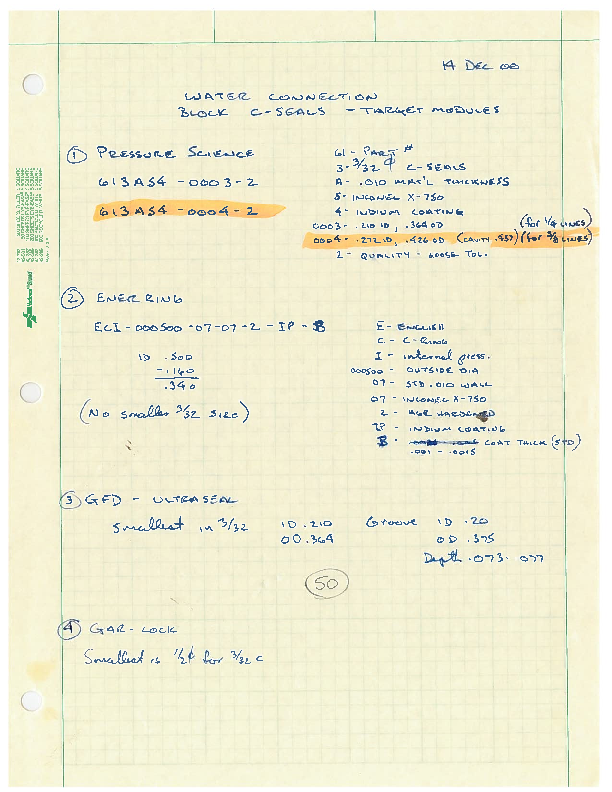 14 DEC 00
WATER CONNECTION
BLOCK C-SEALS - TARGET MODULES
① PRESSURE SCIENCE
613AS4-0003-2
613AS4-0004-2
61 - PART #
3 - 3/32 ¢ C-SEALS
A - .010 MAT'L THICKNESS
S - INCONEL X-750
4 - INDIUM COATING
0003 - .210 ID, .364 OD (for 1/4 LINES)
0004 - .272 ID, .426 OD (CAVITY .437) (for 3/8 LINES)
2 - QUALITY - LOOSE TOL.
② ENERRING
ECI-000500-07-07-2-IP-B
ID .500
-.160
.340
(No smaller 3/32 SIZE)
E - ENGLISH
C - C-RING
I - internal press.
000500 - OUTSIDE DIA
07 - STD .010 WALL
07 - INCONEL X-750
2 - AGE HARDENED
IP - INDIUM COATING
B - COAT THICK (STD)
.001 - .0015
③ GFD - ULTRASEAL
Smallest in 3/32 ID .210 Groove ID .20
OD .364 OD .375
Depth .073 - .077
50
④ GAR-LOCK
Smallest is 1/2 ¢ for 3/32 C